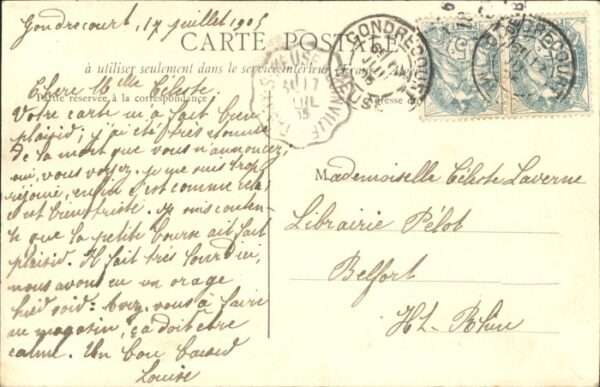 Gondrecourt, 17 juillet 1905
CARTE POSTALE
à utiliser seulement dans le service intérieur
Partie réservée à la correspondance
Adresse
GONDRECOURT
MEUSE
Chère Mlle Céleste
Votre carte m'a fait bien
plaisir; j'ai été très étonnée
de la mort que vous m'annoncez,
oui, vous voyez, je me suis trop
réjouie, enfin c'est comme cela,
c'est bien triste. Je suis conten-
te que la petite bourse ait fait
plaisir. Il fait très lourd ici,
nous avons eu un orage
hier soir. Avez-vous à faire
au magasin, ça doit être
calme. Un bon baiser
Louise
Mademoiselle Céleste Laverne
Librairie Pélot
Belfort
Ht-Rhin